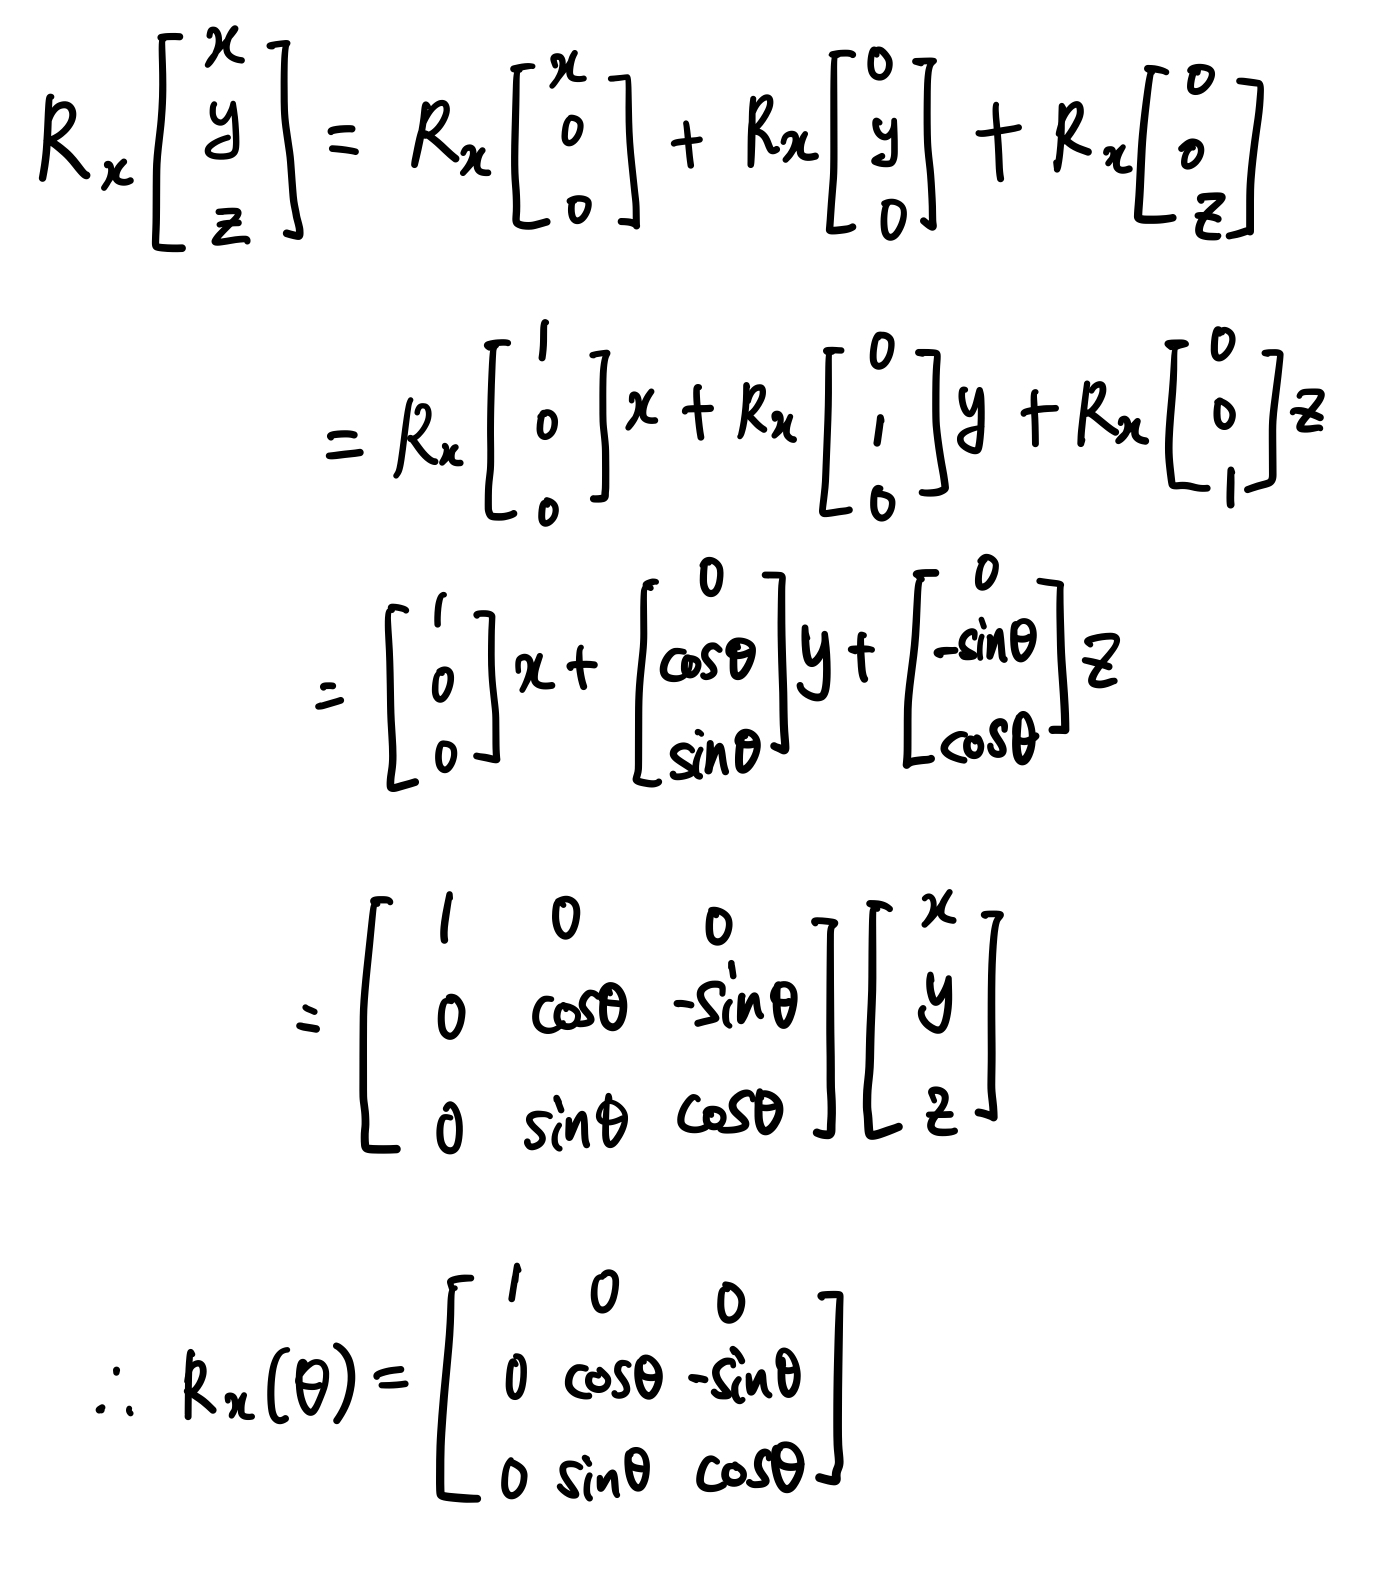 Rₓ [x y z] = Rₓ [x 0 0] + Rₓ [0 y 0] + Rₓ [0 0 z]
= Rₓ [1 0 0] x + Rₓ [0 1 0] y + Rₓ [0 0 1] z
= [1 0 0] x + [0 cosθ sinθ] y + [0 -sinθ cosθ] z
= [1 0 0; 0 cosθ -sinθ; 0 sinθ cosθ] [x y z]
∴ Rₓ(θ) = [1 0 0; 0 cosθ -sinθ; 0 sinθ cosθ]